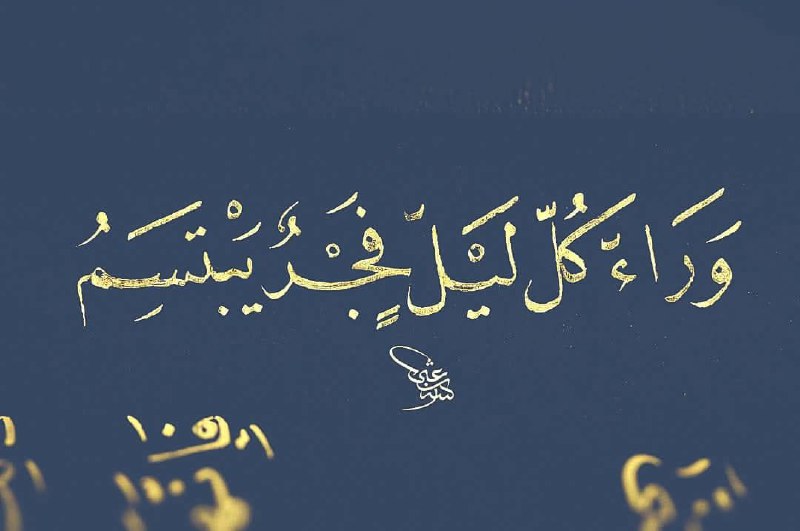 وَرَاءَ كُلِّ لَيْلٍ فَجْرٌ يَبْتَسِمُ